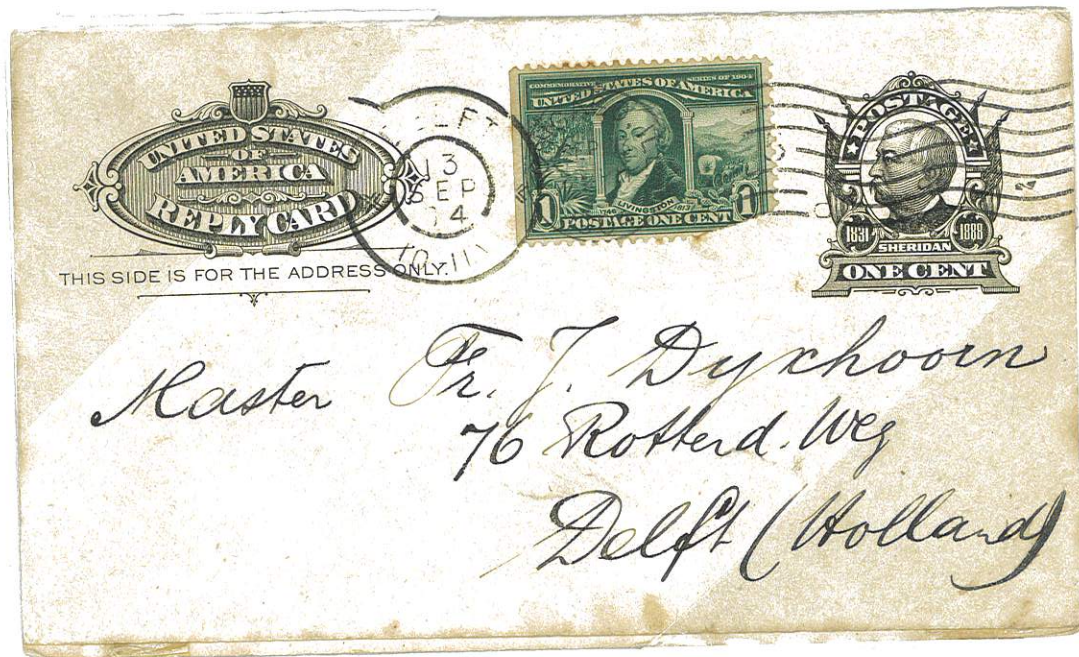 UNITED STATES
OF
AMERICA
REPLY CARD
THIS SIDE IS FOR THE ADDRESS ONLY.
13
SEP
04
COMMEMORATIVE SERIES OF 1904
UNITED STATES OF AMERICA
1746 LIVINGSTON 1813
1 1
POSTAGE ONE CENT
POSTAGE
1831 1889
SHERIDAN
ONE CENT
Master Fr. J. Dyxhoorn
76 Rotterd. Weg
Delft (Holland)